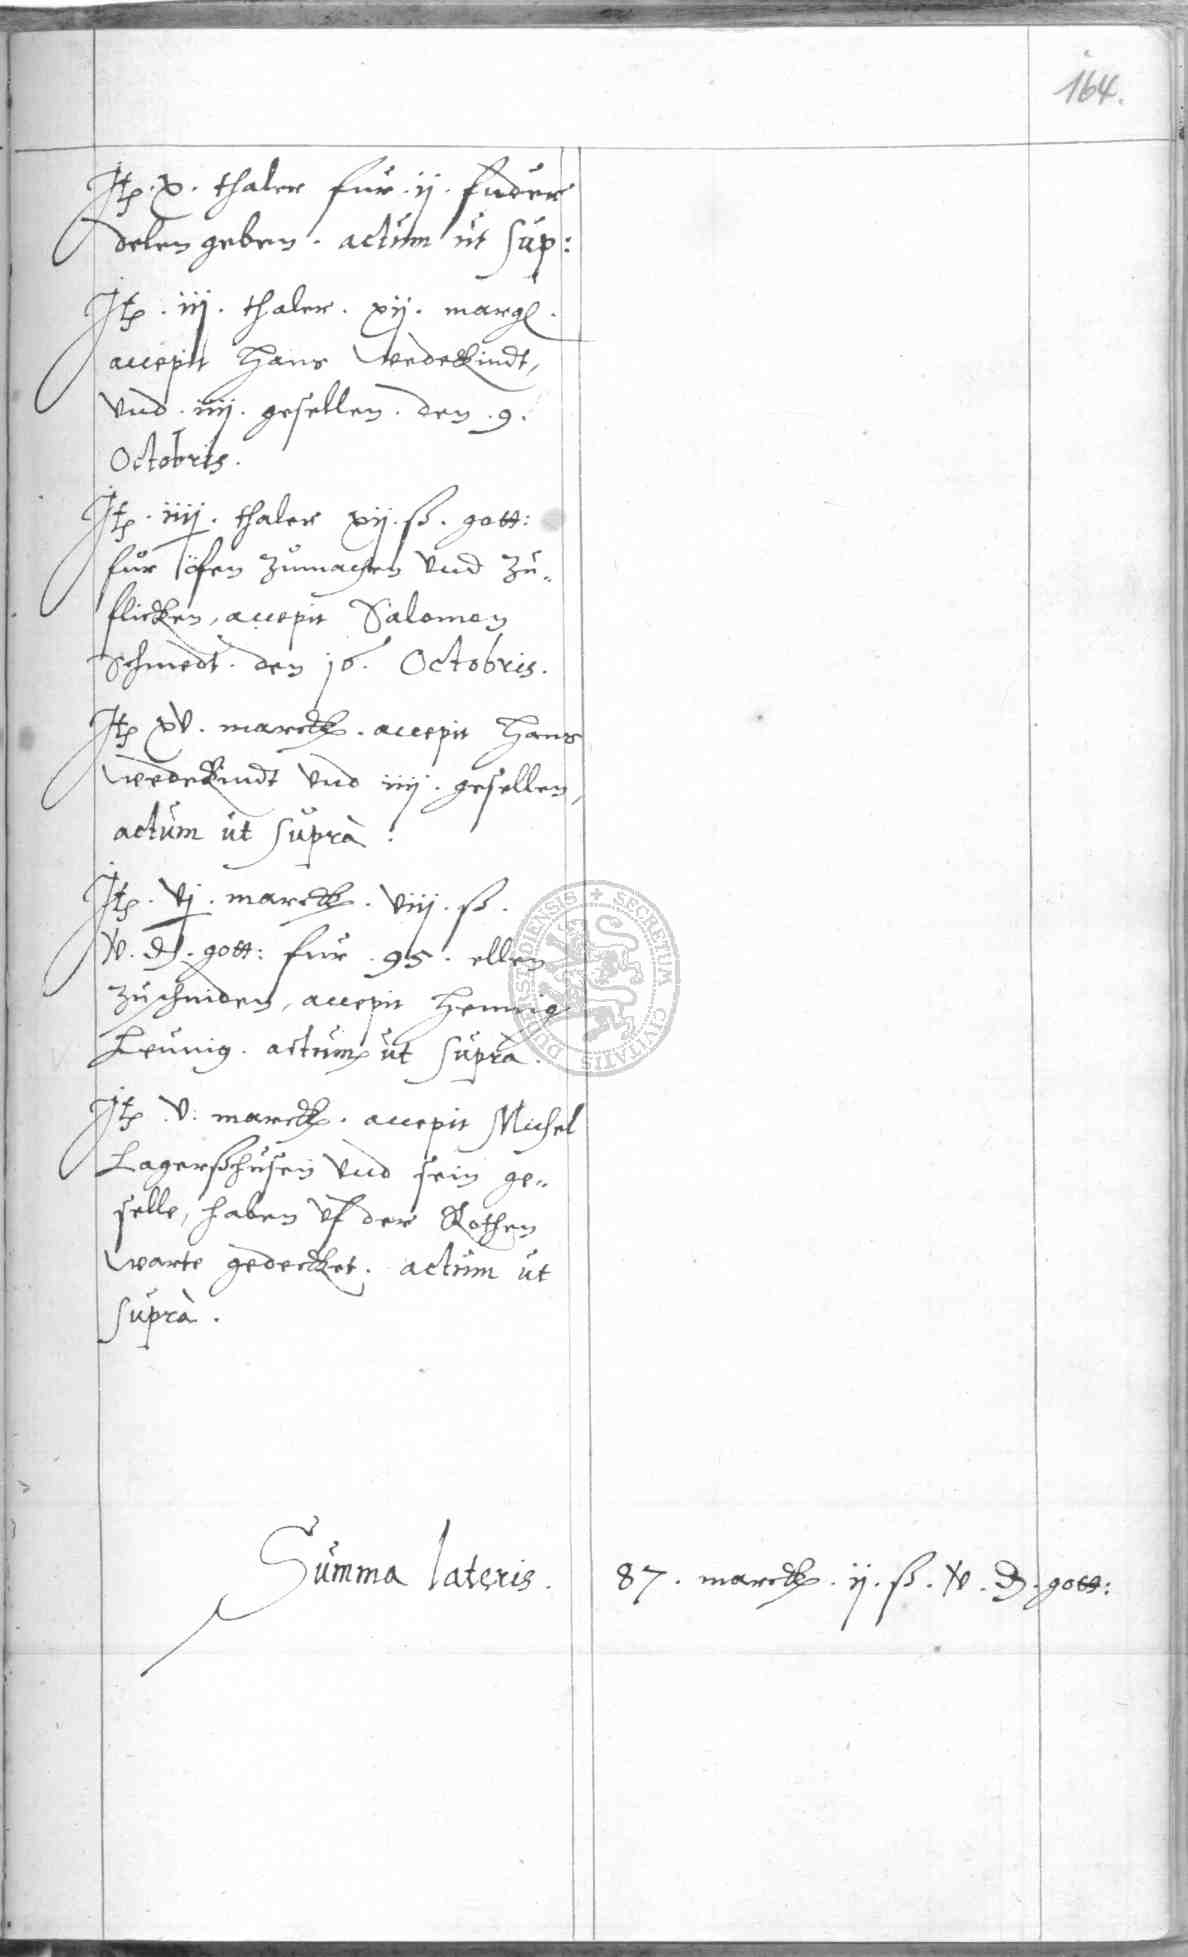 164.
Jtem. x. thaler fur. ij. fuder
delen geben. actum ut sup:
Jtem. iij. thaler. xij. margl.
accepit Hans Wedekindt,
Vnd. iiij. gesellen. den. 9.
Octobris.
Jtem. iiij. thaler xij. ß. gott:
fur öfen zumachen Vnd zu=
flicken, accepit Salomon
Schmedt. den 16. Octobris.
Jtem xv. marck. accepit Hans
Wedekindt Vnd iiij. gesellen,
actum ut suprà.
Jtem. vj. marck. viij. ß.
v. d. gott: fur. 95. ellen
zuschniden, accepit Hennig
Leunig. actum ut suprà.
Jtem v. marck. accepit Michel
Lagerßhusen Vnd sein ge=
selle, haben vf der Rothen
Warte gedecket. actum ut
suprà.
Summa lateris. 87. marck. ij. ß. v. d. gott:
SECRETUM CIVITATIS DUDERSTADIENSIS